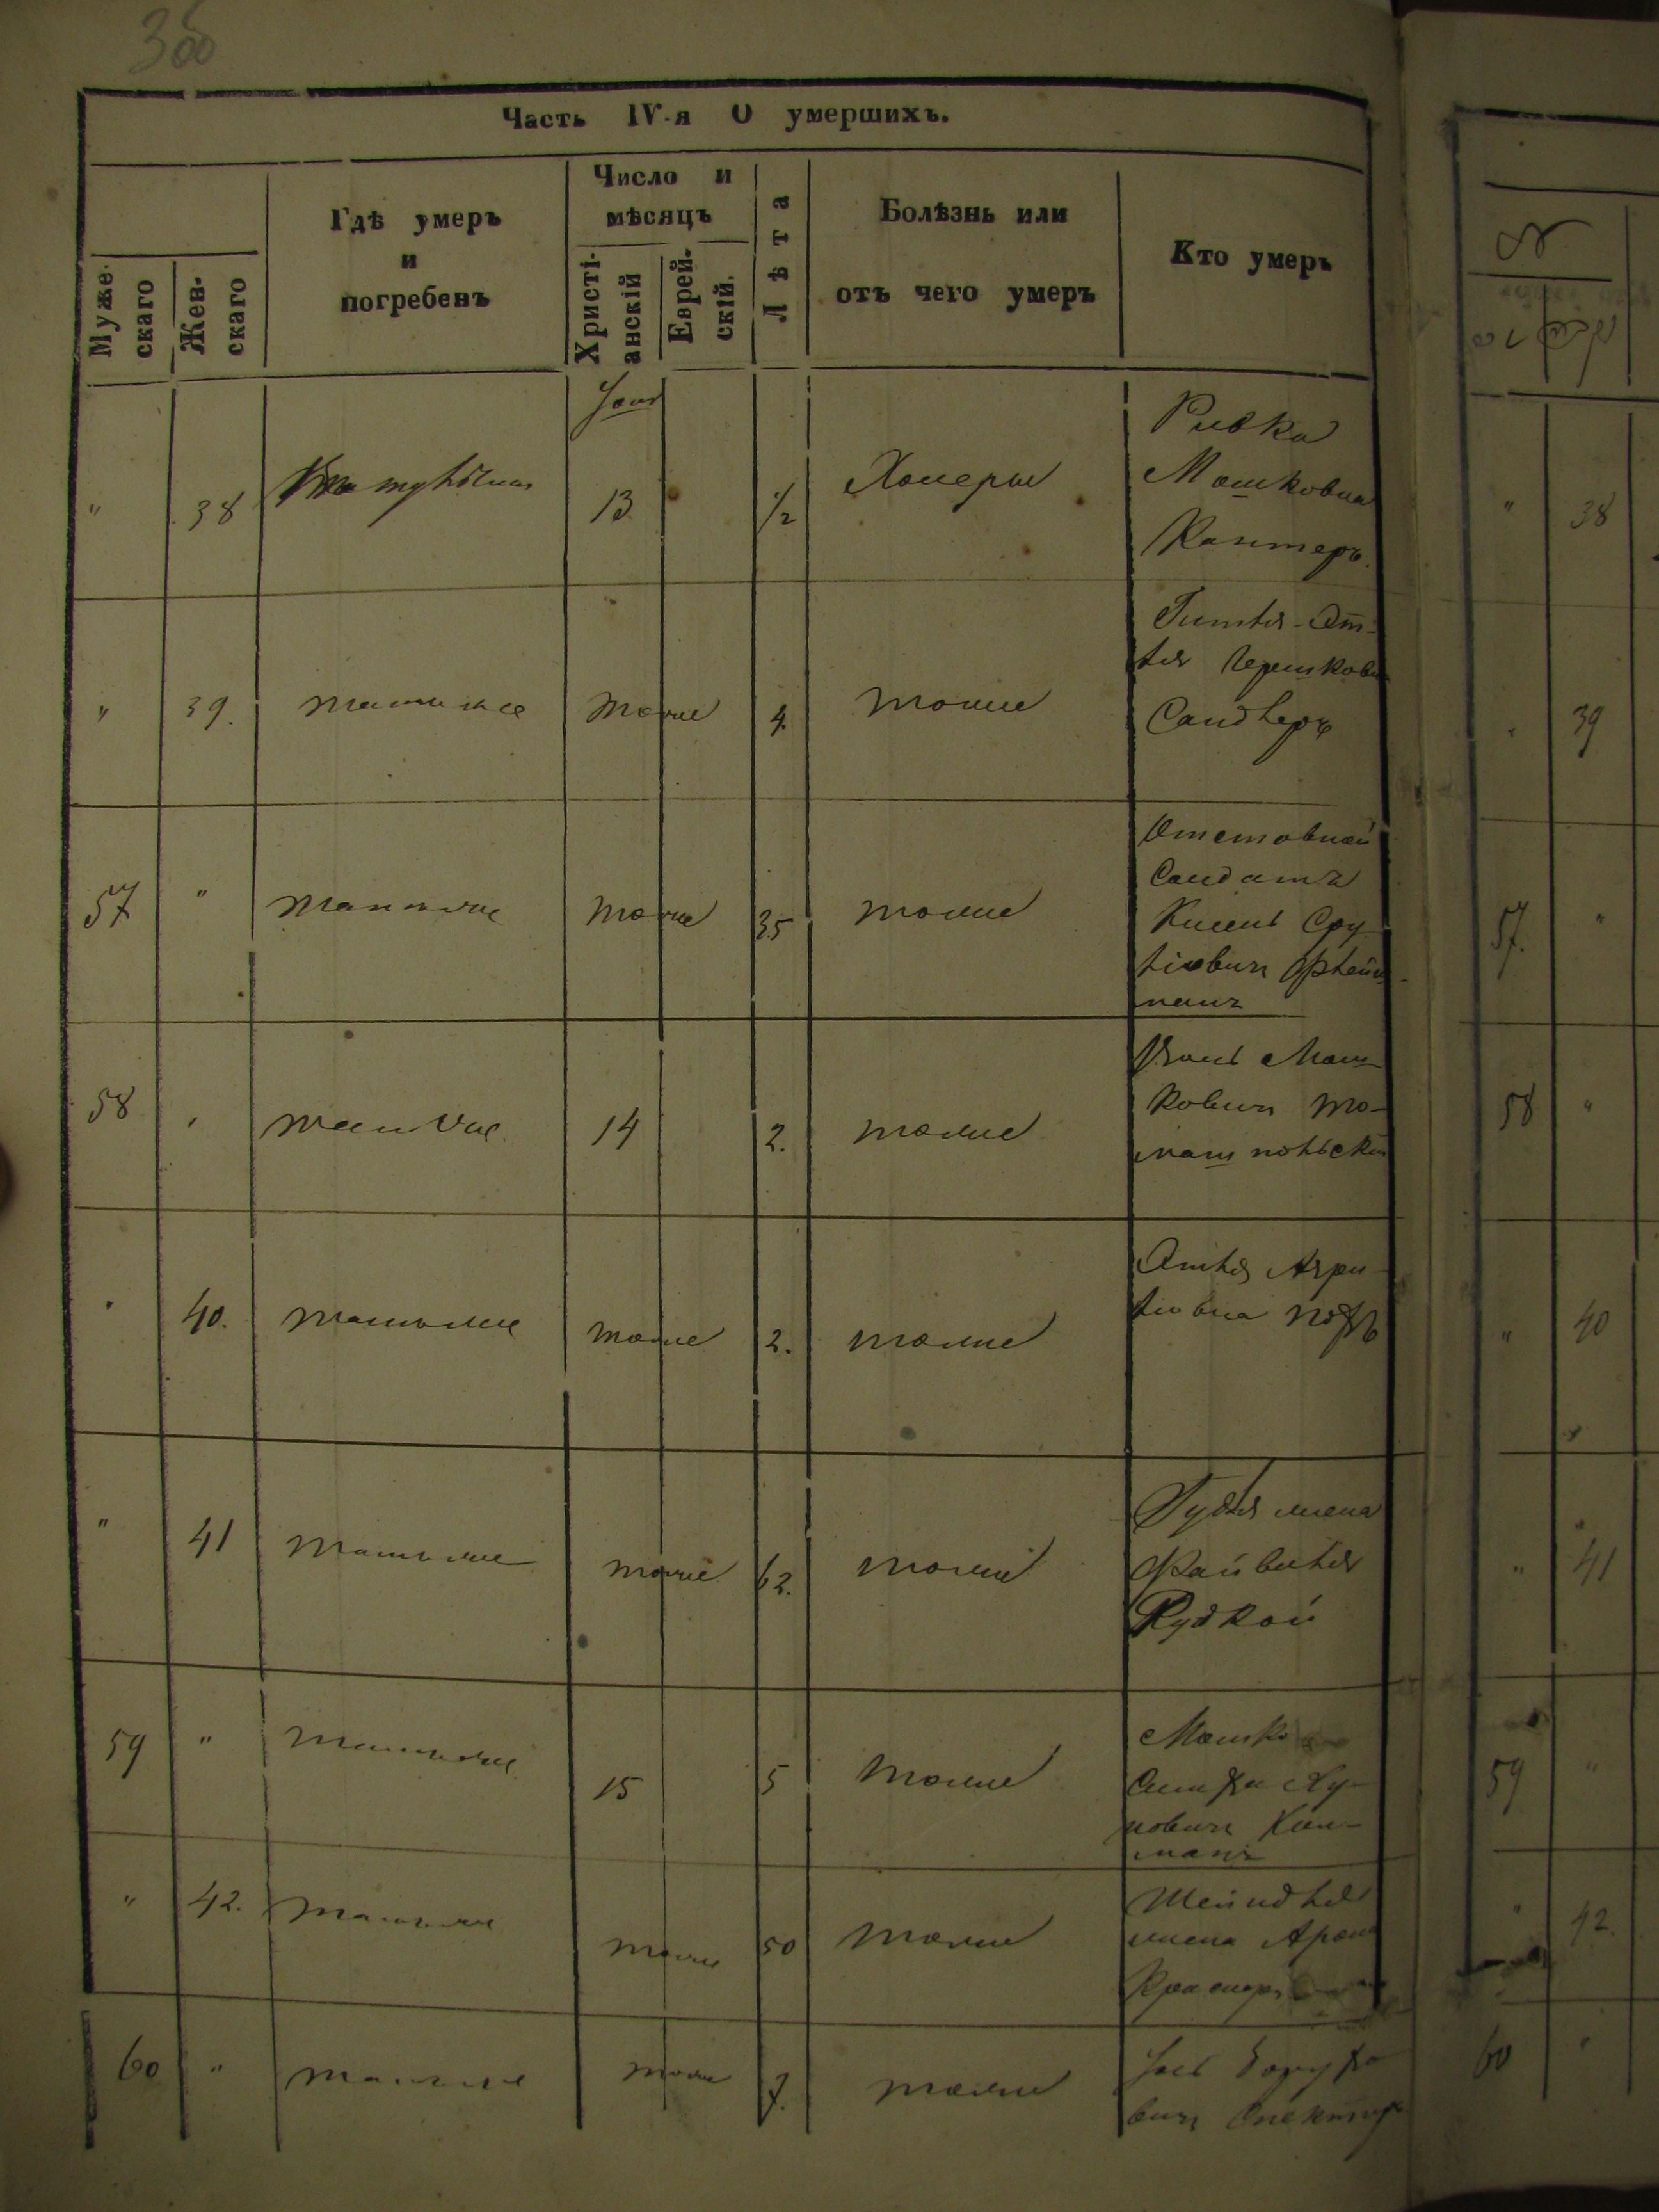 Часть IV-я О умершихъ.
Муже-
скаго
Жен-
скаго
Гдѣ умеръ
и
погребенъ
Число и
мѣсяцъ
Христі-
анскій
Еврей-
скій.
Лѣта
Болѣзнь или
отъ чего умеръ
Кто умеръ
" 38 13 ½ Холеры
Ривка
Мошковна
Кантеръ.
" 39. тамъ же тоже 4. тоже
Гитля-Эт-
ля Гершковн
Сандлеръ
57 " тамъ же тоже 35 тоже
Отставной
Солдатъ
Кисель Сру
ліовичъ Флейш-
манъ
58 " тамъ же 14 2. тоже
Мош-
ковичъ То-
машпольскій
" 40. тамъ же тоже 2. тоже
Этля
" 41 тамъ же тоже 62. тоже
жена
Файвеля
Рудкой
59 " тамъ же 15 5 тоже
Мошко
Симха
новичъ
манъ
" 42. тамъ же тоже 50 тоже
Шейндля
жена Арона
60 " тамъ же тоже 7. тоже
Борухо
вичъ Спекторъ
" 38
" 39
57. "
58 "
" 40
" 41
59 "
" 42.
60 "